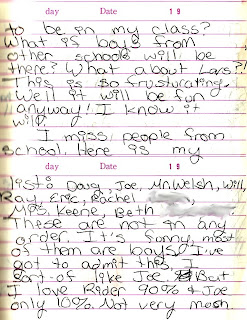 day Date 19
to be in my class?
What if boys from
other schools will be
there? What about
This is so frusturating.
Well it will be fun
anyway! I know it
will.
I miss people from
school. Here is my
day Date 19
list: Doug, Joe, Mr. Welsh, Will,
Ray, Eric, Rachel
Mrs. Keene, Beth
These are not in any
order. It's funny, most
of them are boys! I've
got to admit tho, I
sort-of like Joe. But
I love Rider 90% & Joe
only 10%. Not very much.